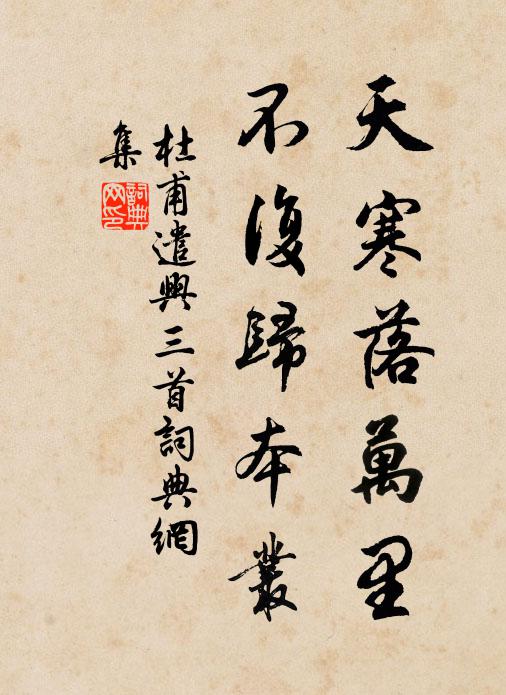 天寒落萬里
不復歸本叢
杜甫遣興三首詞典網
集
詞典網印